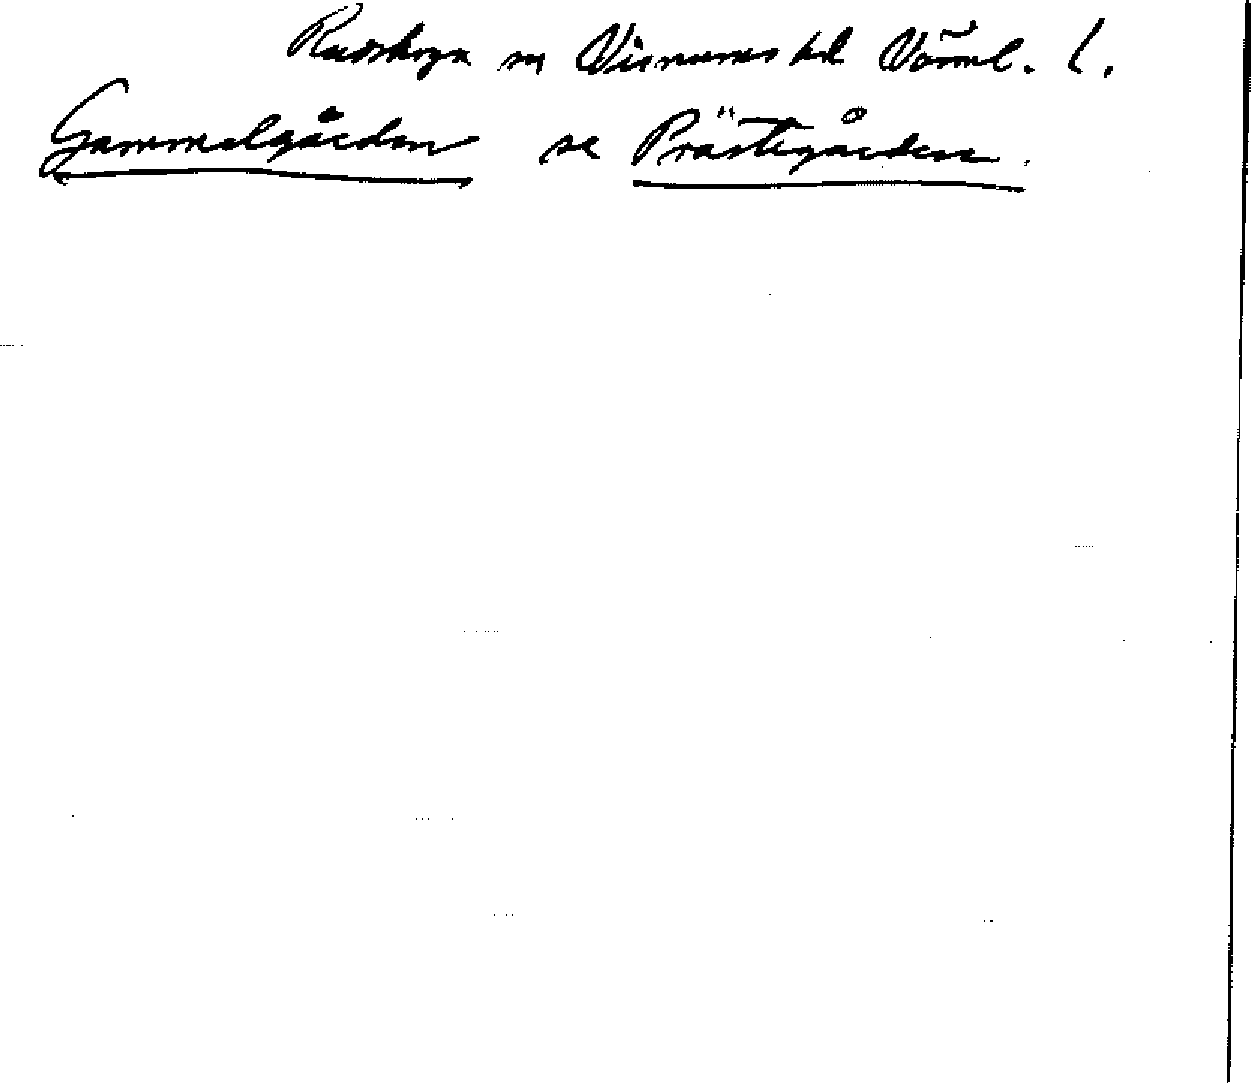 Rudskoga sn Visnums hd Värml. l.
Gammelgården se Prästgården.